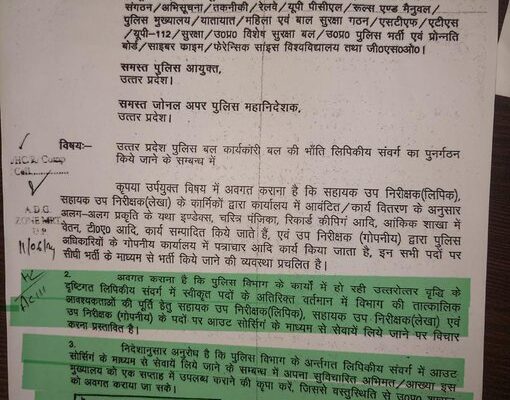 संगठन/अभिसूचना/तकनीकी/रेलवे/यूपी पीसीएल/रूल्स एण्ड मैनुवल/
पुलिस मुख्यालय/यातायात/महिला एवं बाल सुरक्षा गठन/एसटीएफ/एटीएस
/यूपी-112/सुरक्षा/उ0प्र0 विशेष सुरक्षा बल/उ0प्र0 पुलिस भर्ती एवं प्रोन्नति
बोर्ड/साइबर काइम/फेरेन्सिक साइंस विश्वविद्यालय तथा जी0एस0ओ0।
समस्त पुलिस आयुक्त,
उत्तर प्रदेश।
समस्त जोनल अपर पुलिस महानिदेशक,
उत्तर प्रदेश।
विषयः- उत्तर प्रदेश पुलिस बल कार्यकारी बल की भाँति लिपिकीय संवर्ग का पुनर्गठन
किये जाने के सम्बन्ध में
A.D.G.
ZONE MRT
U.P.
कृपया उर्पयुक्त विषय में अवगत कराना है कि सहायक उप निरीक्षक(लिपिक),
सहायक उप निरीक्षक(लेखा) के कार्मिकों द्वारा कार्यालय में आवंटित/कार्य वितरण के अनुसार
अलग-अलग प्रकृति के यथा इण्डेक्स, चरित्र पंजिका, रिकार्ड कीपिंग आदि, आंकिक शाखा में
वेतन, टी0ए0 आदि, कार्य सम्पादित किये जाते हैं, एवं उप निरीक्षक (गोपनीय) द्वारा पुलिस
अधिकारियों के गोपनीय कार्यालय में पत्राचार आदि कार्य किया जाता है, इन सभी पदों पर
सीधी भर्ती के माध्यम से भर्ती किये जाने की व्यवस्था प्रचलित है।
2. अवगत कराना है कि पुलिस विभाग के कार्यो में हो रही उत्तरोत्तर वृद्धि के
दृष्टिगत लिपिकीय संवर्ग में स्वीकृत पदों के अतिरिक्त वर्तमान में विभाग की तात्कालिक
आवश्यकताओं की पूर्ति हेतु सहायक उप निरीक्षक(लिपिक), सहायक उप निरीक्षक(लेखा) एवं
उप निरीक्षक (गोपनीय) के पदों पर आउट सोर्सिंग के माध्यम से सेवायें लिये जाने पर विचार
करना प्रस्तावित है।
3. निदेशानुसार अनुरोध है कि पुलिस विभाग के अर्न्तगत लिपिकीय संवर्ग में आउट
सोर्सिंग के माध्यम से सेवायें लिये जाने के सम्बन्ध में अपना सुविचारित अभिमत/आख्या इस
मुख्यालय को एक सप्ताह में उपलब्ध कराने की कृपा करें, जिससे वस्तुस्थिति से उ0प्र0 शासन
को अवगत कराया जा सके।